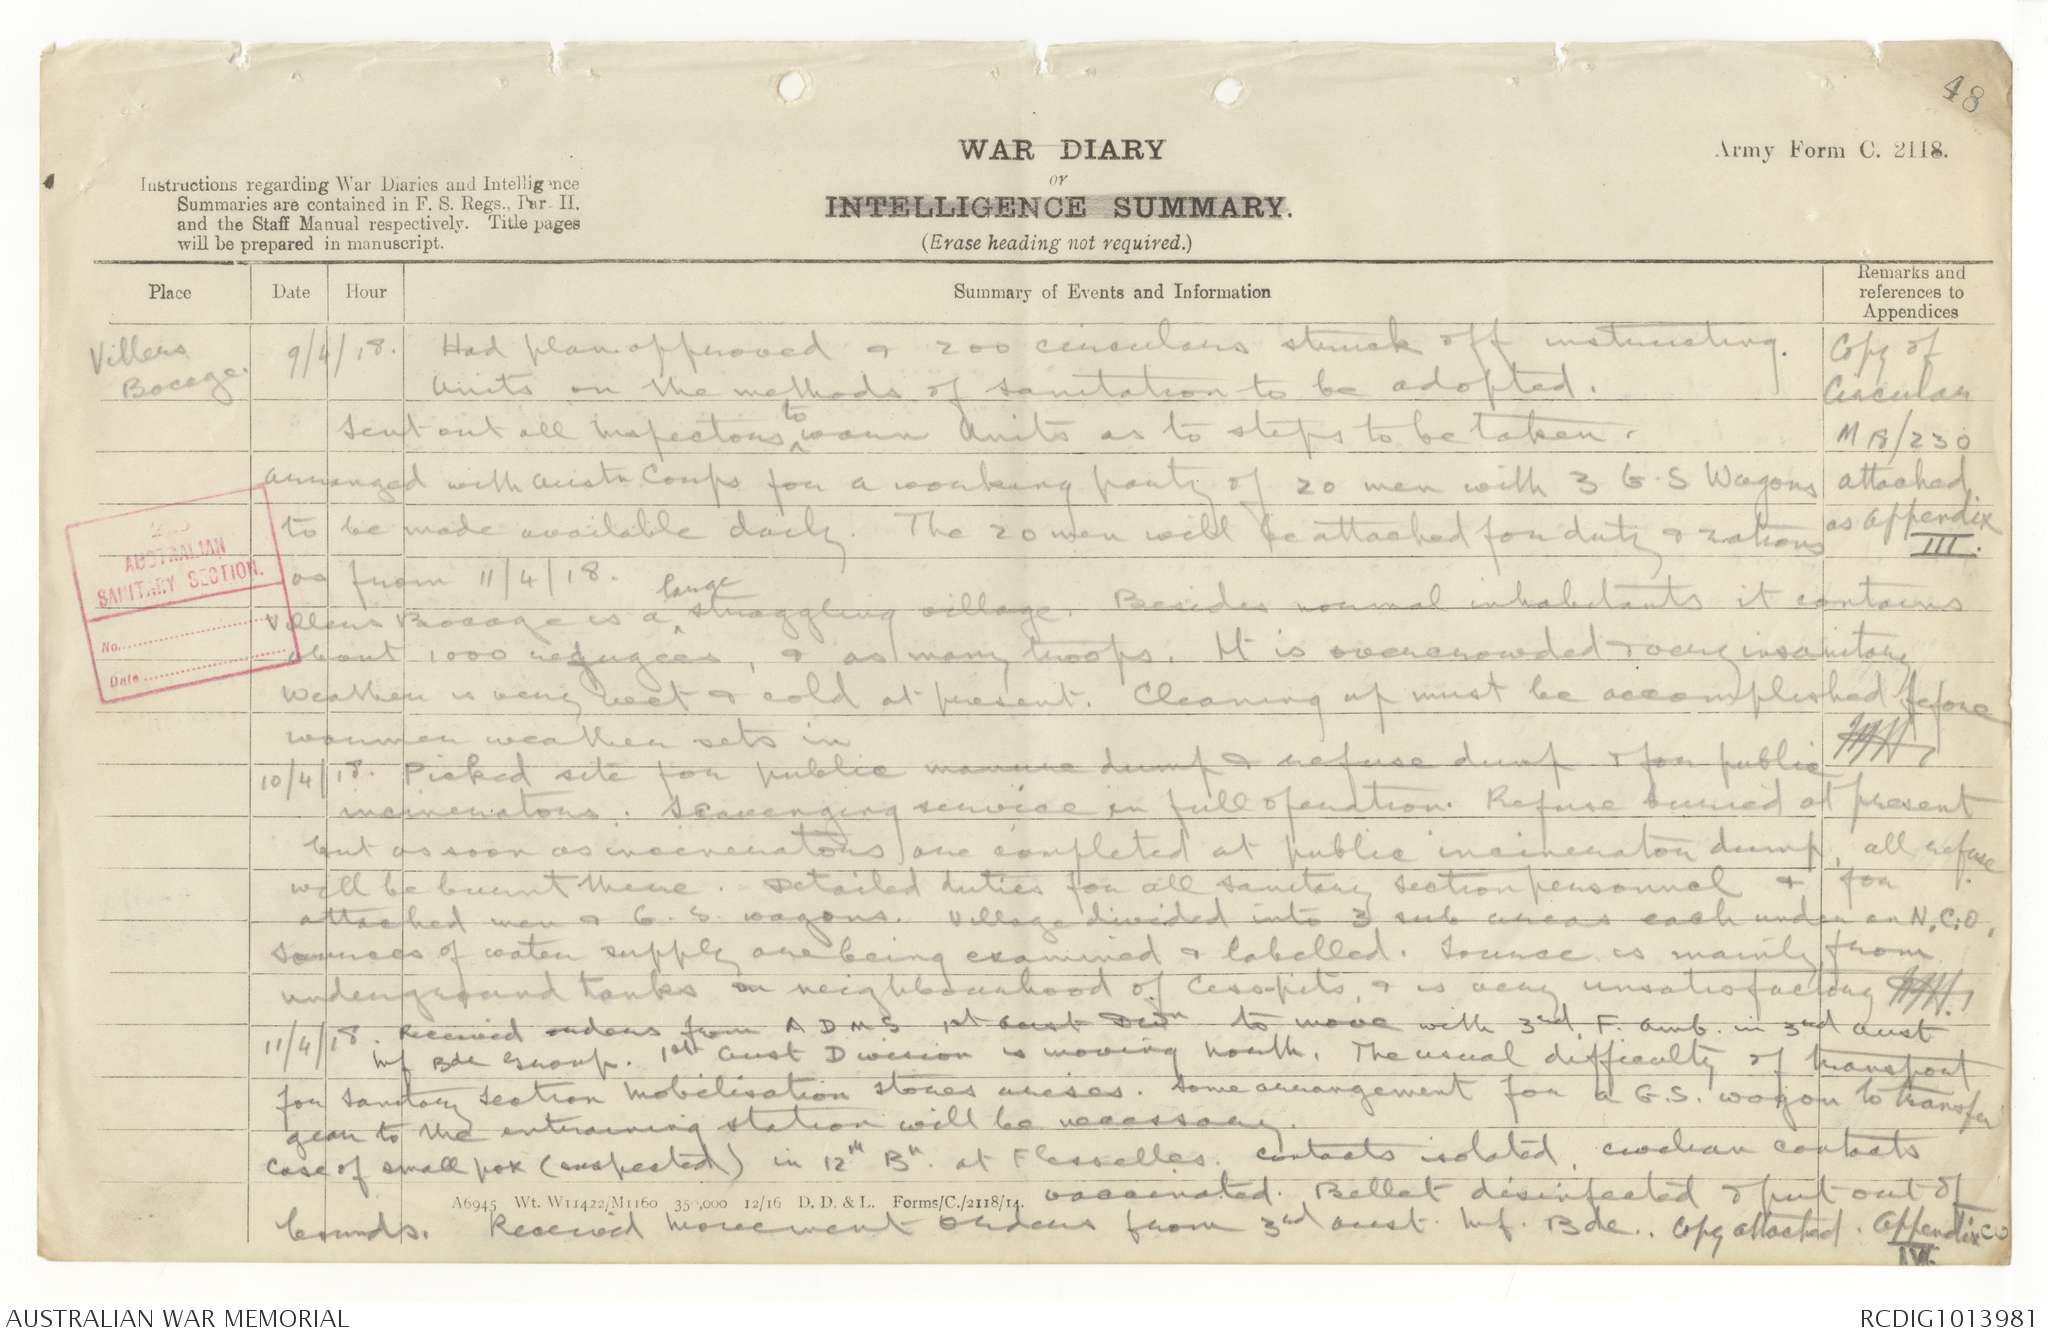 48
WAR DIARY
or
INTELLIGENCE SUMMARY.
(Erase heading not required.)
Army Form C. 2118.
Instructions regarding War Diaries and Intelligence
Summaries are contained in F. S. Regs., Part II.
and the Staff Manual respectively. Title pages
will be prepared in manuscript.
Place Date Hour Summary of Events and Information Remarks and references to Appendices
Villers Bocage. 9/4/18. Had plan approved & 200 circulars struck off instructing.
Units on the methods of sanitation to be adopted.
Sent out all Inspectors to warn Units as to steps to be taken.
Arranged with Austn. Corps for a working party of 20 men with 3 G.S Wagons
to be made available daily. The 20 men will be attached for duty & rations
as from 11/4/18.
Copy of
Circular
M R/230
attached
as appendix
III.
Villers Bocage is a large straggling village. Besides normal inhabitants it contains
about 1000 refugees, & as many troops. It is overcrowded & very insanitary
Weather is very wet & cold at present. Cleaning up must be accomplished before
warmer weather sets in
10/4/18. Picked site for public manure dump & refuse dump & for public
incinerators. Scavenging service in full operation. Refuse buried at present
but as soon as incinerators are completed at public incinerator dump, all refuse
will be burnt there. Detailed duties for all sanitary section personnel & for
attached men & G.S. wagons. Village divided into 3 sub areas each under an N.C.O.
Sources of water supply are being examined & labelled. Source is mainly from
underground tanks in neighbourhood of cess-pits, & is very unsatisfactory
11/4/18. Received orders from A D M S 1st Aust Divn to move with 3rd F. Amb. in 3rd Aust
Inf Bde Group. 1st Aust Division is moving North. The usual difficulty of transport
for sanitary section mobilisation stores arises. Some arrangement for a G.S. wagon to transfer
gear to the entraining station will be necessary.
Case of small pox (suspected) in 12th Bn. at Flesselles. Contacts isolated, civilian contacts
vaccinated. Billet disinfected & put out of
bounds. Received movement orders from 3rd Aust. Inf. Bde.. Copy attached. Appendix
IV.
AUSTRALIAN
SANITARY SECTION.
No.
Date
A6945 Wt. W11422/M1160 350,000 12/16 D. D. & L. Forms/C./2118/14.
AUSTRALIAN WAR MEMORIAL
RCDIG1013981